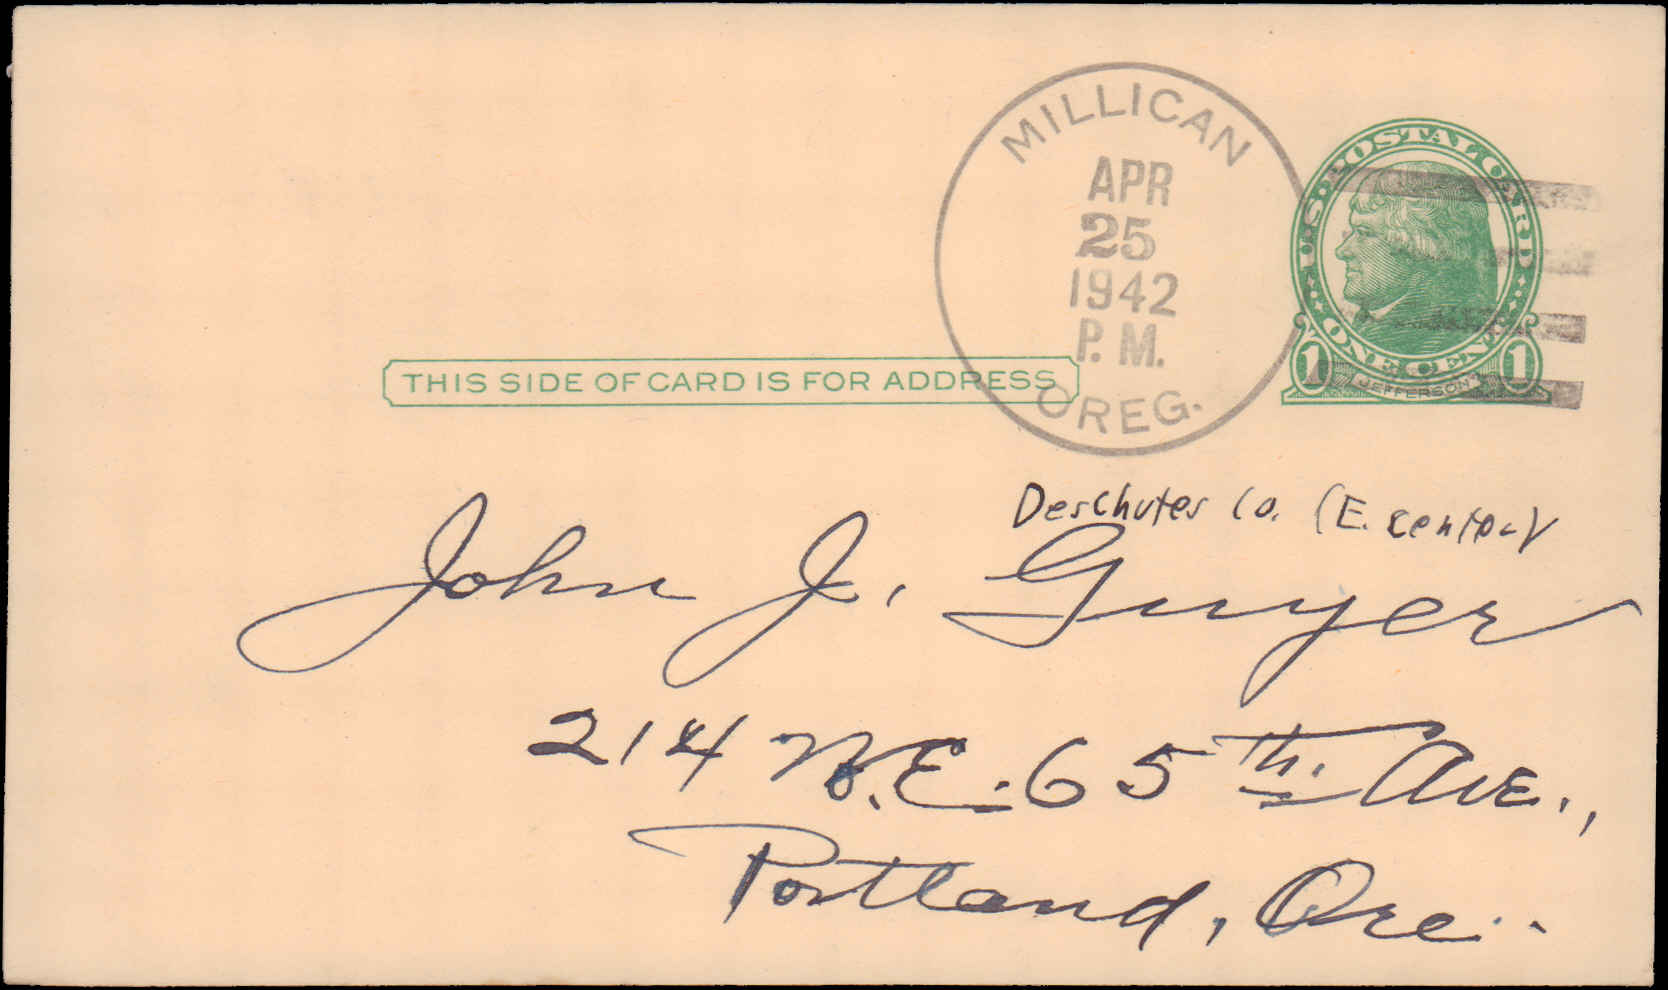 MILLICAN
APR
25
1942
P. M.
OREG.
U·S·POSTAL CARD
ONE CENT
1 1
JEFFERSON
THIS SIDE OF CARD IS FOR ADDRESS
Deschutes Co. (E. central
John J. Guyer
214 N.E. 65th. Ave.,
Portland, Ore.